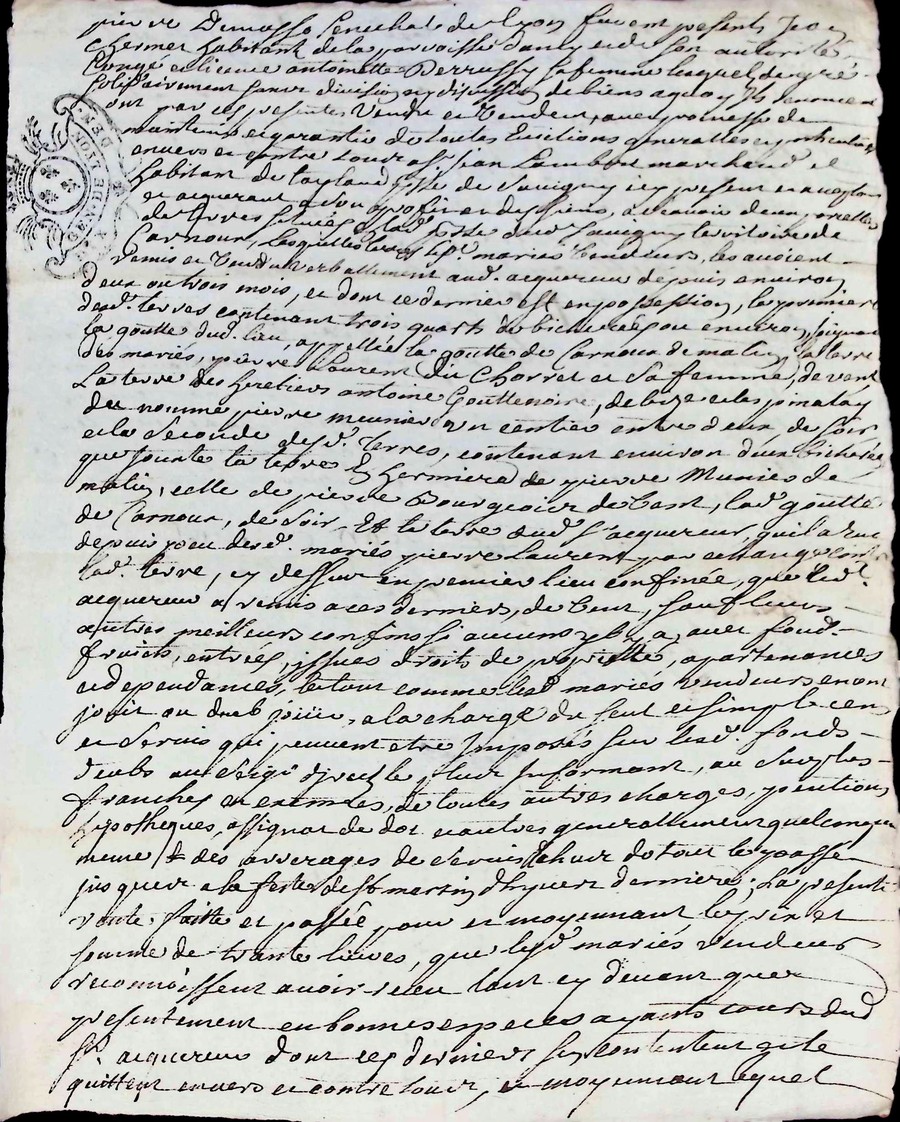 pierre Demasso Senechal de Lyon furent presents Jean
Chermet habitant de la parroisse d'ancy et de son autorité
Congé et licence antoinette Berrussy sa femme lesquels de gré
solidairement sans division ny discussion de biens a quoy ils renoncent
ont par ces presentes Vendu et Vendent, avec promesse de
maintenir et garantir de toutes Evictions generalles et particulieres
envers et contre tous a sr. Jean marchand et
habitant de psse de Savigny icy present et acceptant
et acquerant a son profit et des siens, a scavoir deux
de terres situés a lad. psse dud. Savigny territoire de
Carnoux, lesquelles terres lesd. mariés Vendeurs, les avoient
remis et Vendu verballement aud. acquereur depuis environ
deux ou trois mois, et dont ce dernier est en possession, la premiere
desd. terres contenant trois quarts de bicherée ou environ, joignant
la goutte dud. lieu, appellée la goutte de Carnoux de matin, la terre
des mariés, pierre Laurent dit Chorret et sa femme, de vent
La terre des heretiers antoine Gouttenoire, de bize et les
du nomme pierre meunier un sentier entre deux de soir
et la Seconde desd. Terres, contenant environ d'un bicherée
que jouxte la terre Ehermiere de pierre Munier de
matin, celle de pierre Bourgeois de Vent, lad. goutte
de Carnoux, de Soir Et la terre dud. sr. acquereur, qu'il a eue
depuis peu desd. mariés pierre Laurent par echange contre
lad. terre, cy dessus en premier lieu confinée, que led.
acquereur a remis a ces derniers, de Vent, sauf leurs
autres meilleurs confins si aucuns il y a, avec fond
fruits, entrées, issues droits de proprieté, apartenances
et dependances, le tout comme lesd. mariés Vendeurs en ont
joui ou dueb jouir, a la charge du seul et simple cens
et Servis qui peuvent etre Imposés sur lesd. fonds
deubs au seigr. direct le plus Informant, au Surplus
franches et exemtes, de toutes autres charges, pentions
hypotheques, assignat de dot et autres generallement quelconques
meme des arrerages de servis de tout le passé
jusques a la feste de St. martin d'hyver derniere; La presente
vente faitte et passée pour et moyennant, le prix et
somme de trante livres, que lesd. mariés vendeurs
reconnoissent avoir receu tant cy devant que
presentement en bonnes especes ayants cours dud.
sr. acquereur dont ces derniers se contentent et le
quittent envers et contre tous, et moyennant lequel